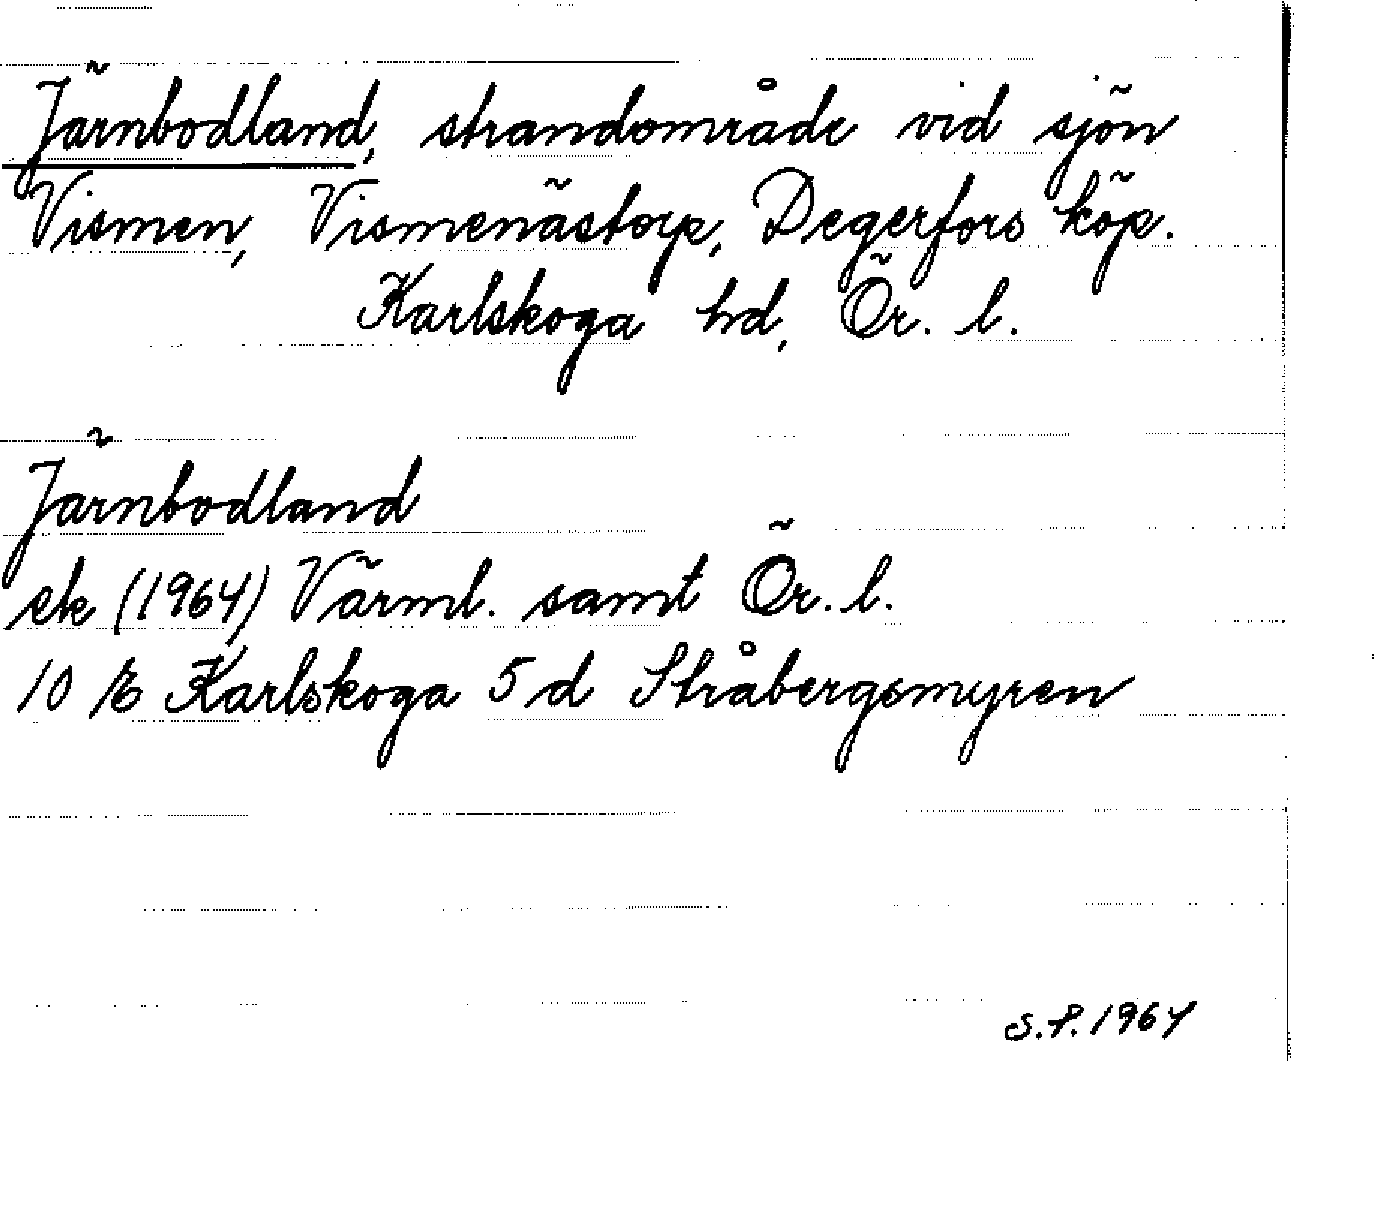 Järnbodland, strandområde vid sjön
Vismen, Vismenästorp, Degerfors köp.
Karlskoga hd, Ör. l.
Järnbodland
ek (1964) Värml. samt Ör. l.
10 E Karlskoga 5 d Stråbergsmyren
S.P. 1964